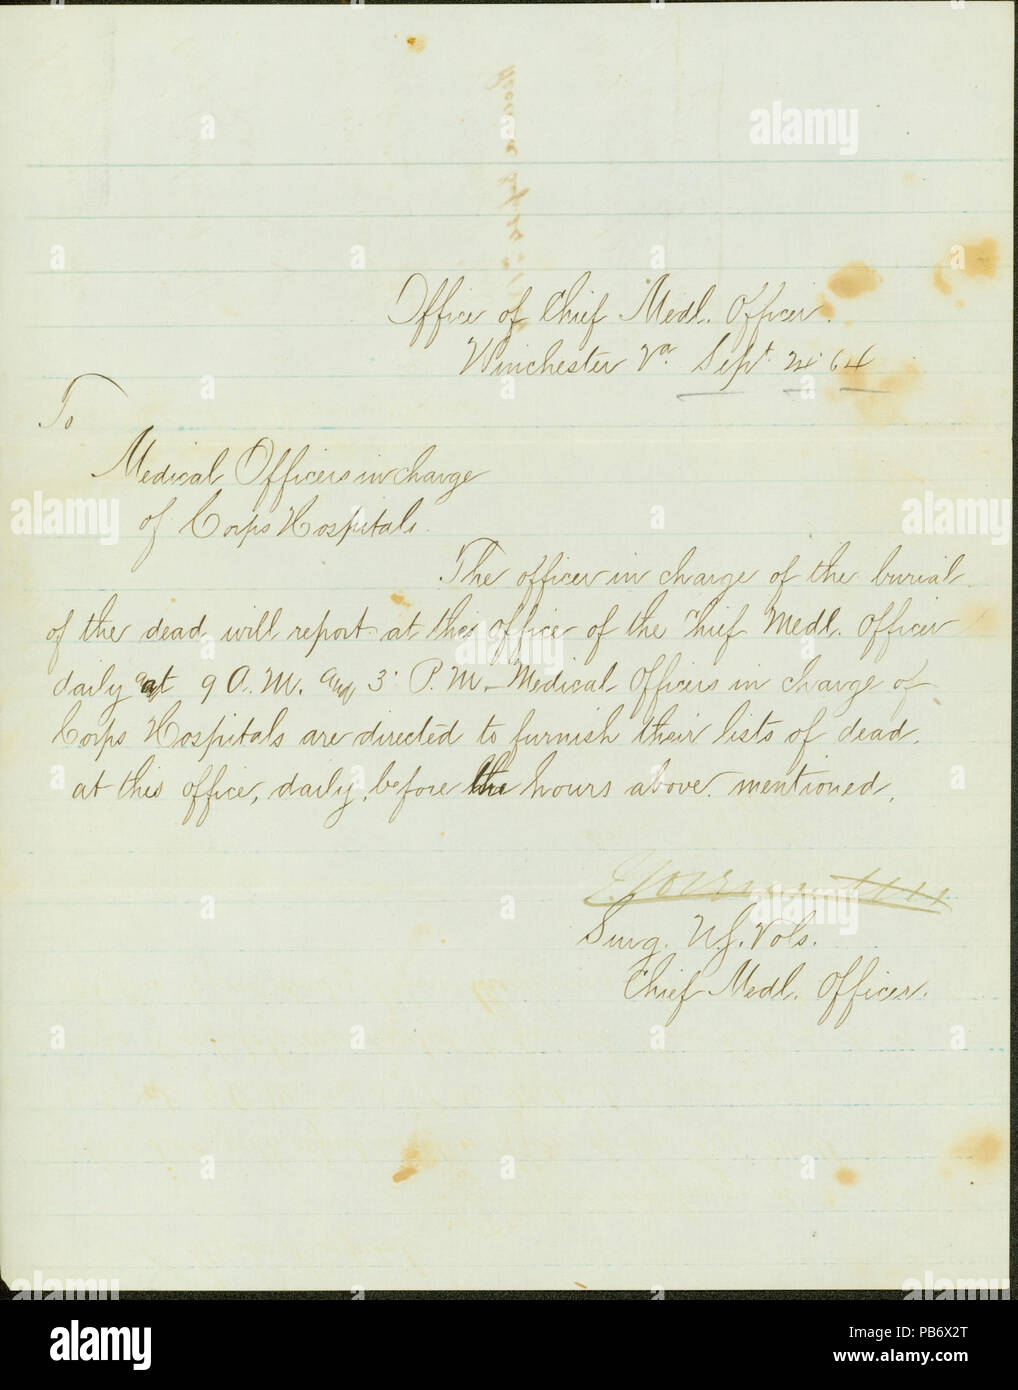 Office of Chief Medl. Officer.
Winchester Va. Sept. 24 64
To
Medical Officers in charge
of Corps Hospitals.
The officer in charge of the burial
of the dead will report at the office of the Chief Medl. Officer
daily at 9 A.M. and 3 P.M. Medical Officers in charge of
Corps Hospitals are directed to furnish their lists of dead.
at this office, daily, before the hours above mentioned,
Surg. U.S. Vols.
Chief Medl. Officer.
alamy
PB6X2T
www.alamy.com